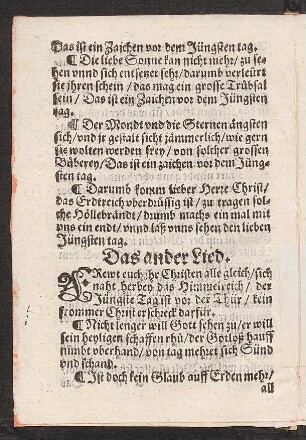 Das ist ein Zaichen vor dem Jüngsten tag.
¶ Die liebe Sonne kan nicht mehr / zu se-
hen vnnd sich entsetzet sehr / darumb verleürt
sie jhren schein / das mag ein grosse Trübsal
sein / Das ist ein Zaichen vor dem Jüngsten
tag.
¶ Der Mondt vnd die Sternen ängsten
sich / vnd jr gestalt sicht jämmerlich / wie gern
sie wolten werden frey / von solcher grossen
Büberey / Das ist ein zaichen vor dem Jüng-
sten tag.
¶ Darumb komm lieber Herr Christ /
das Erdtreich vberdrüssig ist / zu tragen sol-
che Höllebrändt / drumb machs ein mal mit
vns ein endt / vnnd laß vnns sehen den lieben
Jüngsten tag.
Das ander Lied.
FRewt euch jhr Christen alle gleich / sich
naht herbey das Himmelreich / der
Jüngste Tag ist vor der Thür / kein
frommer Christ erschreck darfür.
¶ Nicht lenger will Gott sehen zu / er will
sein heyligen schaffen rhü / der Gotloß hauff
nimbt vberhand / von tag mehret sich Sünd
vnd schand.
¶ Ist doch kein Glaub auff Erden mehr /
all